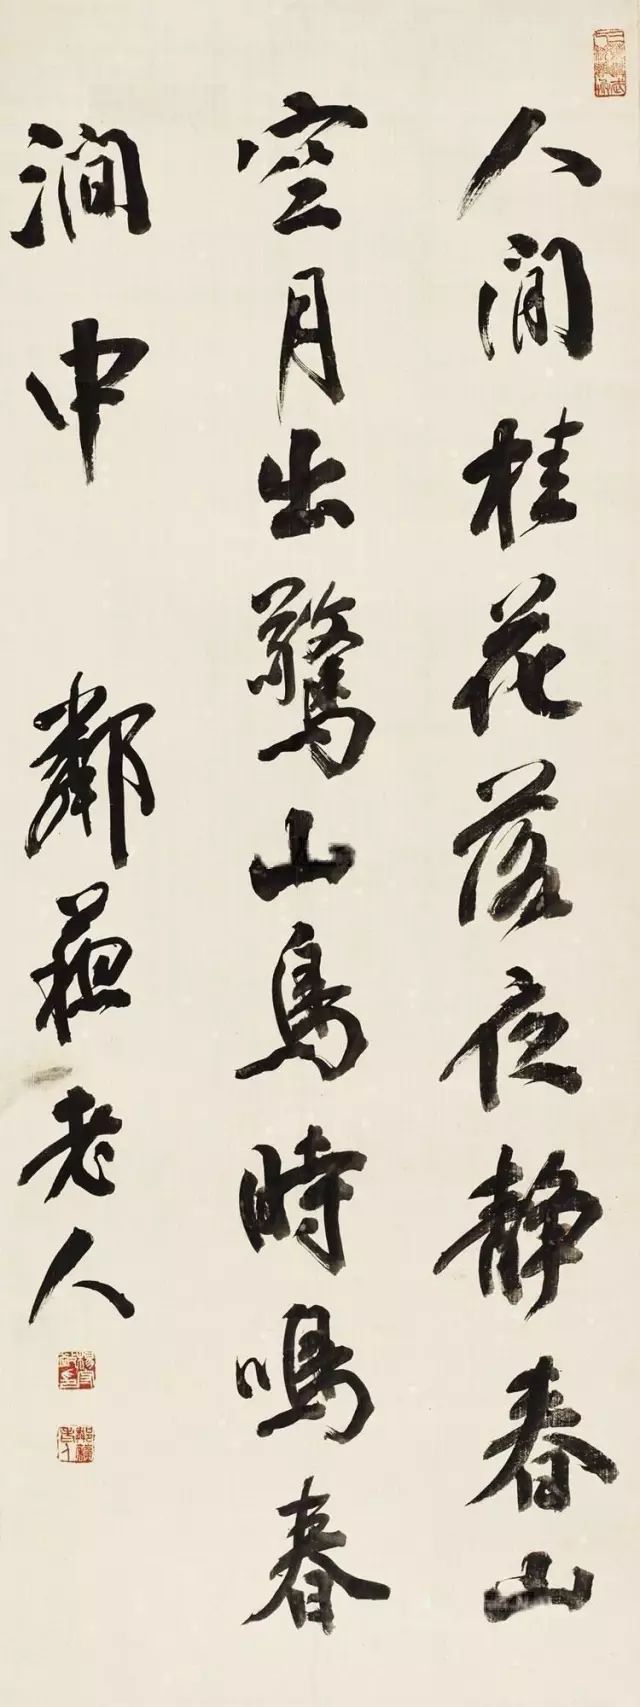 人閒桂花落夜静春山
空月出驚山鳥時鳴春
澗中
鄰蘇老人